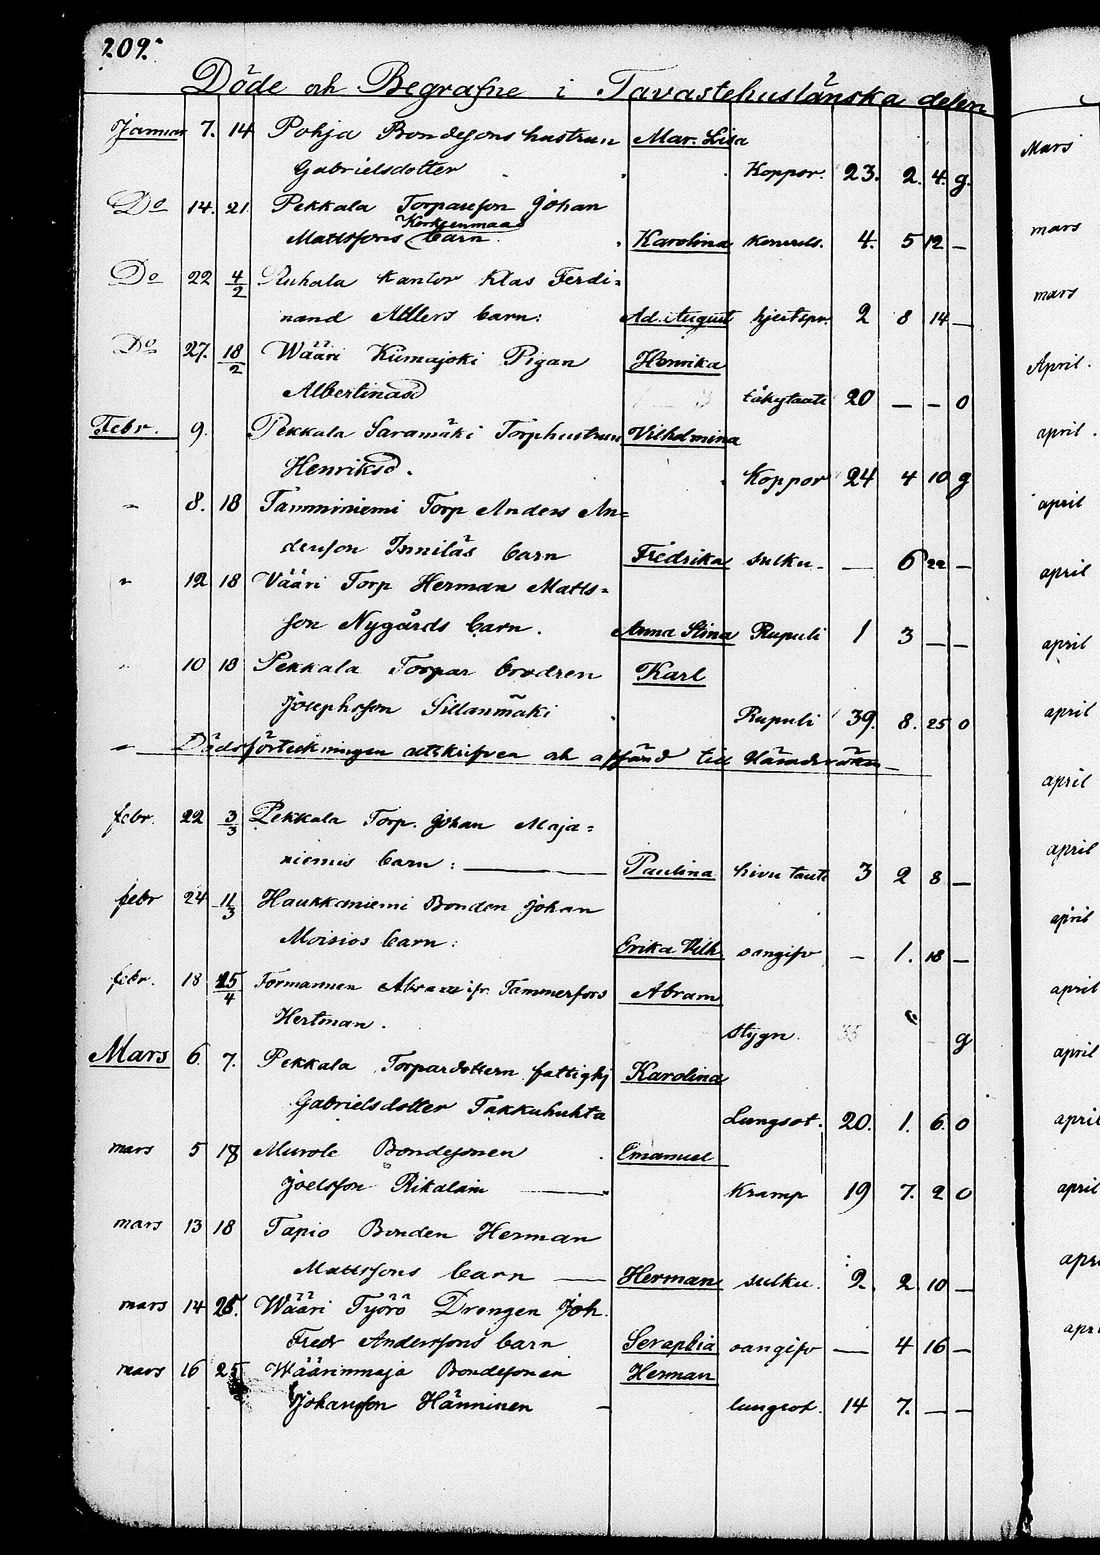 209.
Döde och Begrafne i Tavastehuslänska delen
Januar 7. 14 Pohja Bondesons hustrun Mar. Lisa
Gabrielsdotter Koppor. 23. 2. 4. g.
Do 14. 21 Pekkala Torpareson Johan
Mattssons barn. Karolina 4. 5 12 —
Do 22 4/2 Kantor Klas Ferdi=
nand Ahlers barn: Ad. August hjertspr. 2 8 14 —
Do 27. 18/2 Wääri Kiimajoki Pigan Henrika
Albertinasd 20 — — o
Febr. 9. Pekkala Saramäki Torphustrun Vilhelmina
Henriksd. Koppor 24 4 10 g
" 8. 18 Tamminiemi Torp Anders An=
dersson Inniläs barn Fredrika sulku. — 6 22 —
" 12 18 Vääri Torp Herman Matts=
son Nygårds barn. Anna Stina Rupuli 1 3 — —
" 10 18 Pekkala Torpar brodren Karl
Josephsson Sillanmäki Rupuli 39. 8. 25 o
" Dödsförteckningen utskrifven och affärd till
febr. 22 3/3 Pekkala Torp. Johan Maja=
niemis barn: Paulina hivu tauti 3 2 8 —
febr 24 11/3 Haukkaniemi Bonden Johan
Moisios barn: Erika Vilh. oangifv — 1. 18 —
febr. 18 25/4 Formannen Abram ifr. Tammerfors Abram
Hertman. Stygn. 35 g
Mars 6. 7. Pekkala Torpardottern fattighj Karolina
Gabrielsdotter Takkuhuhta Lungsot. 20. 1. 6. o
mars 5 18 Murole Bondesonen Emanuel
Joelsson Rikalain Kramp 19 7. 2 o
mars 13 18 Tapio Bonden Herman
Mattssons barn Herman sulku. 2. 2. 10 —
mars 14 25. Wääri Työrö Drengen Joh.
Fredr Anderssons barn Seraphia oangifv — 4 16 —
mars 16 25 Wäärinmaja Bondesonen Herman
Johansson Hänninen lungsot. 14 7. — —
Mars
mars
mars
April.
april.
april
april
april
april
april
april
april
april
april
april
april
apri
apri